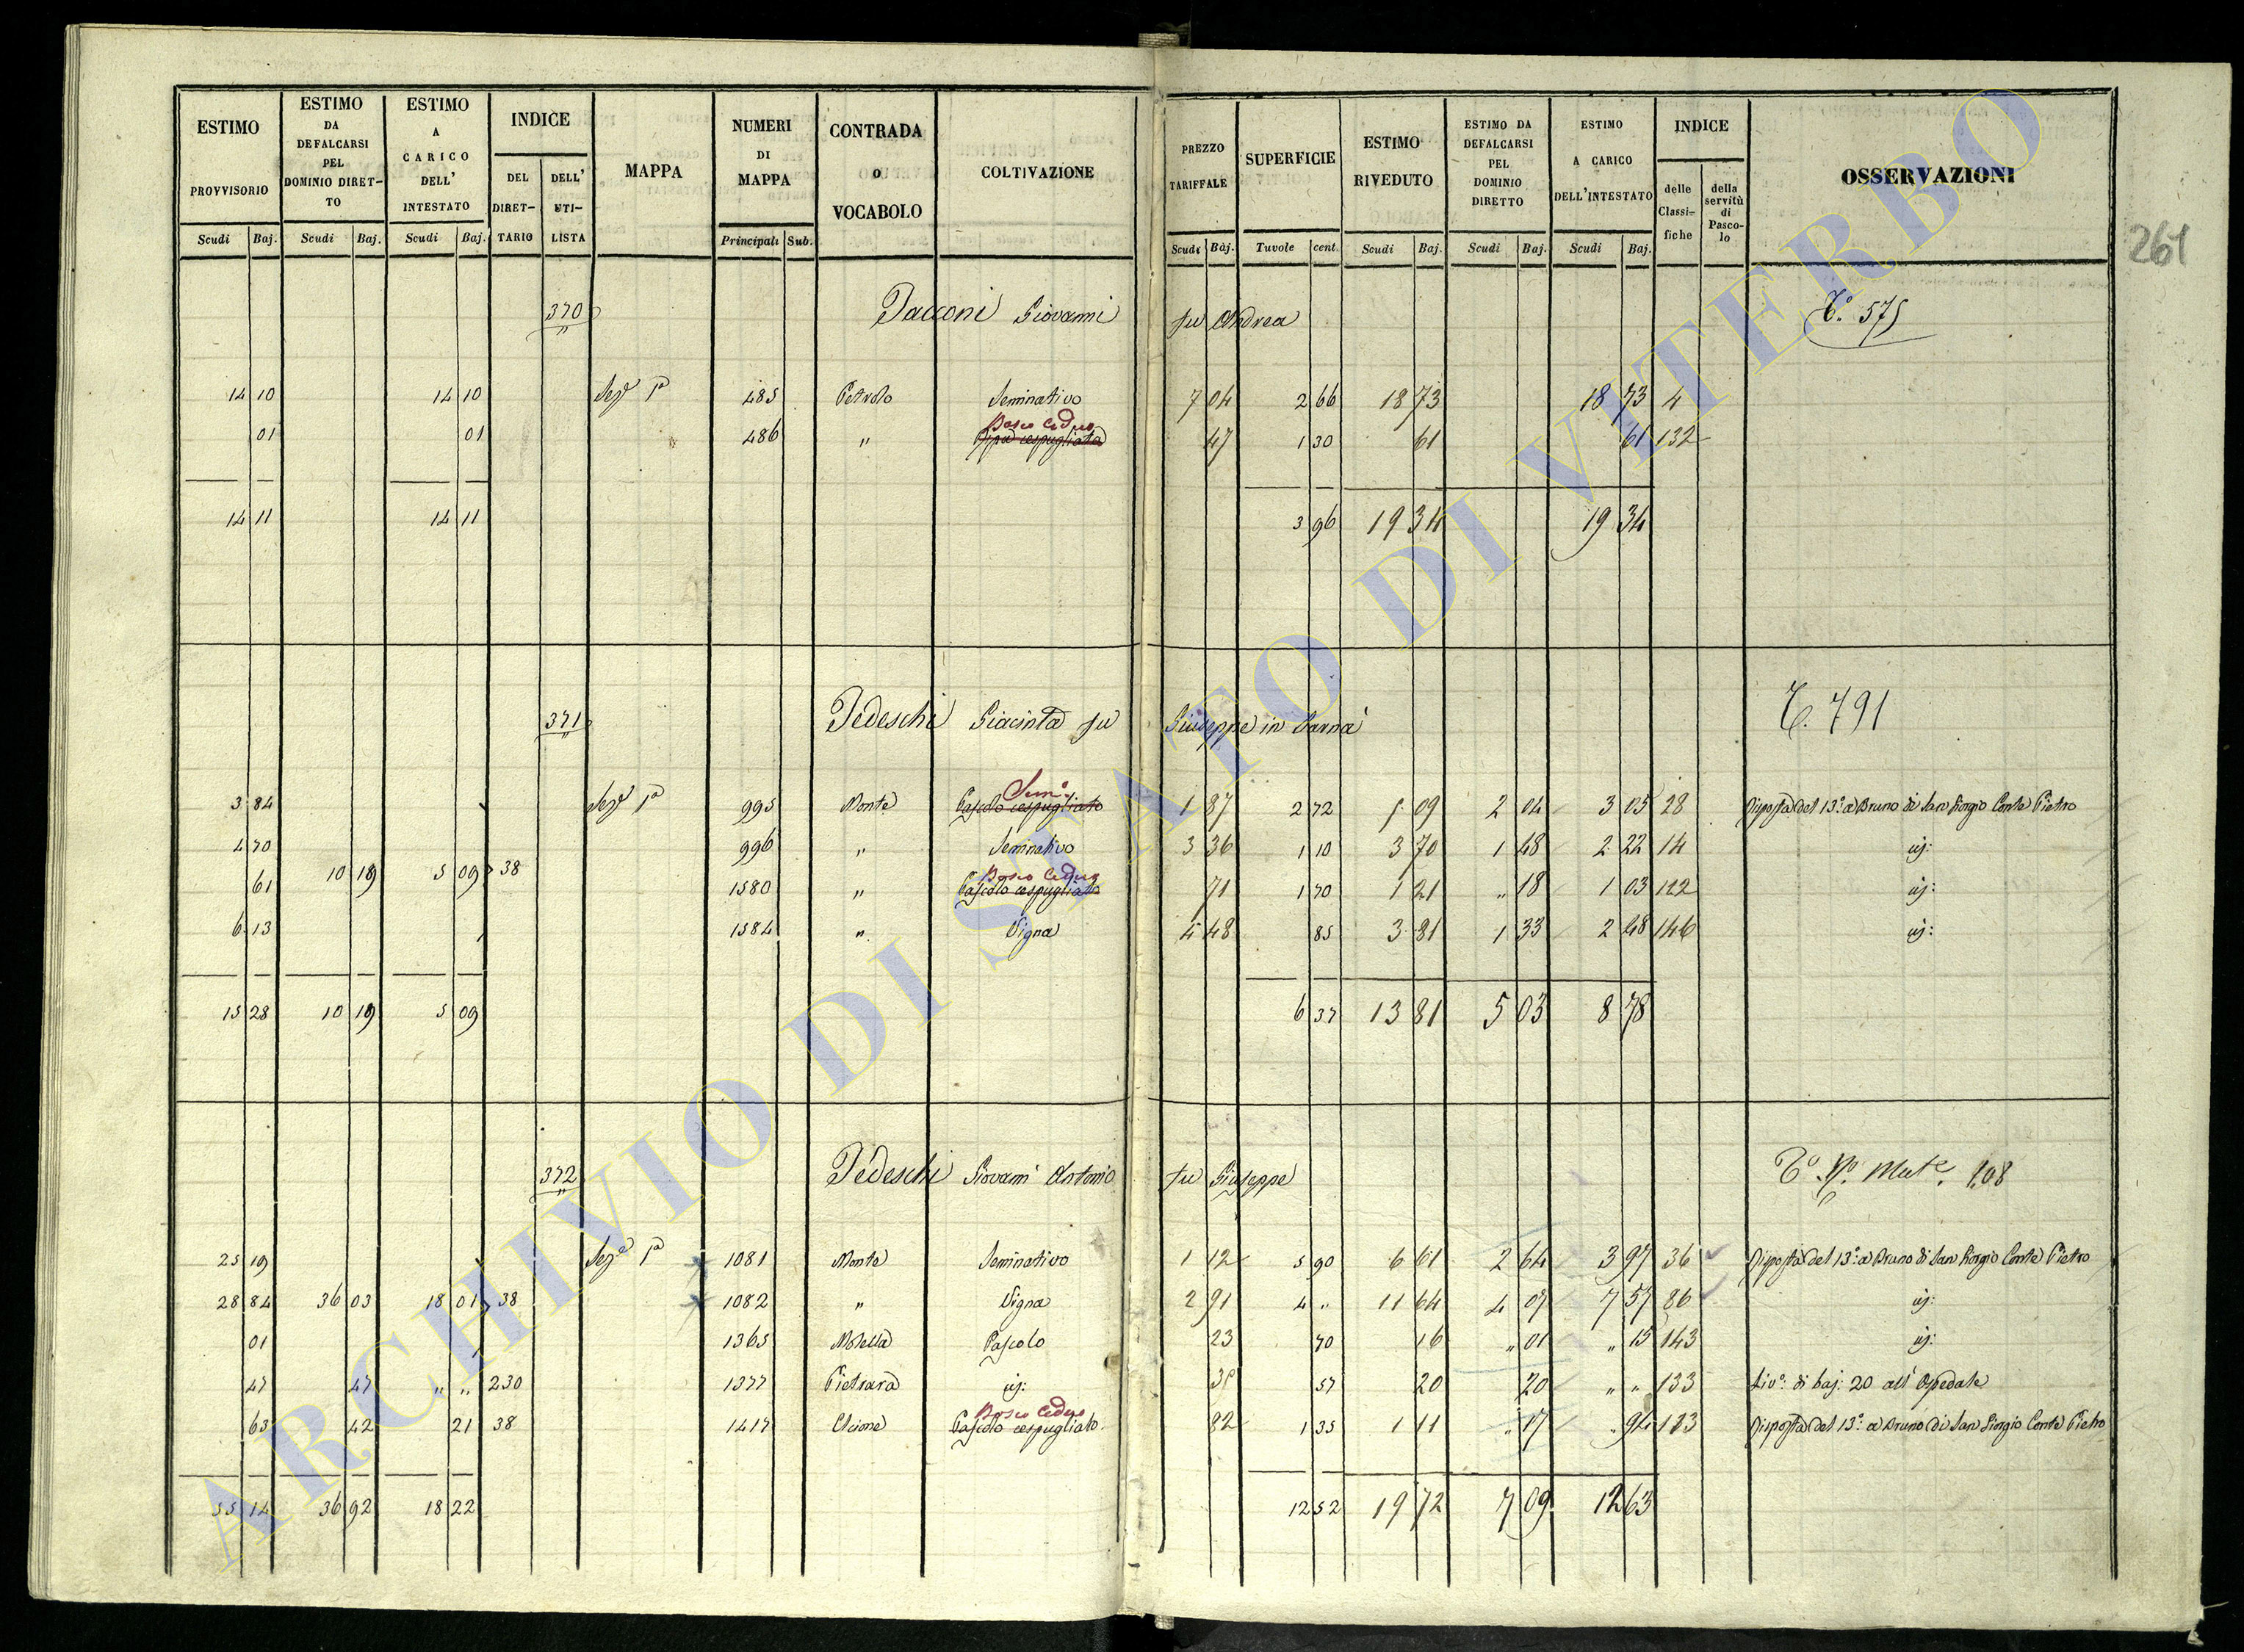 ESTIMO PROVVISORIO | ESTIMO DA DEFALCARSI PEL DOMINIO DIRET-TO | ESTIMO A CARICO DELL' INTESTATO | INDICE DEL DIRET-TARIO | DELL' UTI-LISTA | MAPPA | NUMERI DI MAPPA | CONTRADA O VOCABOLO | COLTIVAZIONE | PREZZO TARIFFALE | SUPERFICIE | ESTIMO RIVEDUTO | ESTIMO DA DEFALCARSI PEL DOMINIO DIRETTO | ESTIMO A CARICO DELL'INTESTATO | INDICE delle Classi-fiche | della servitù di Pasco-lo | OSSERVAZIONI
Scudi Baj. | Scudi Baj. | Scudi Baj. | Principali Sub. | Scudi Baj. | Tavole cent. | Scudi Baj. | Scudi Baj. | Scudi Baj.
261
370 Tacconi Giovanni fu Andrea T.º 575
14 10 | 14 10 | Sezᵉ 1ª | 485 | Petrolo | Seminativo | 7 04 | 2 66 | 18 73 | 18 73 | 4
01 | 01 | 486 | " | Bosco Ceduo Ripa cespugliata | 47 | 1 30 | 61 | 61 | 132
14 11 | 14 11 | 3 96 | 19 34 | 19 34
371 Tedeschi Giacinta fu Giuseppe in Sarna T. 791
3 84 | Sezᵉ 1ª | 995 | Monte | Semº Pascolo cespugliato | 1 87 | 2 72 | 5 09 | 2 04 | 3 05 | 28 | Risposta del 13º a Bruno di San Giorgio Conte Pietro
4 70 | 996 | " | Seminativo | 3 36 | 1 10 | 3 70 | 1 48 | 2 22 | 14 | id:
61 | 10 19 | 5 09 | 38 | 1580 | " | Bosco Ceduo Pascolo cespugliato | 71 | 1 70 | 1 21 | " 18 | 1 03 | 122 | id:
6 13 | 1584 | " | Vigna | 4 48 | 85 | 3 81 | 1 33 | 2 48 | 146 | id:
15 28 | 10 19 | 5 09 | 6 37 | 13 81 | 5 03 | 8 78
372 Tedeschi Giovanni Antonio fu Giuseppe Tº Nº Matᵉ 108
25 19 | Sezᵉ 1ª | 1081 | Monte | Seminativo | 1 12 | 5 90 | 6 61 | 2 64 | 3 97 | 36 | Risposta del 13º a Bruno di San Giorgio Conte Pietro
28 84 | 36 03 | 18 01 | 38 | 1082 | " | Vigna | 2 91 | 4 " | 11 64 | 4 07 | 7 57 | 86 | id:
01 | 1365 | Pascolo | 23 | 70 | 16 | " 01 | " 15 | 143 | id:
47 | 47 | " " | 230 | 1377 | Pietrara | id: | 57 | 20 | 20 | " " | 133 | Livº: di baj: 20 all' Ospedale
63 | 42 | 21 | 38 | 1417 | Bosco Ceduo Pascolo cespugliato | 82 | 1 35 | 1 11 | " 17 | " 94 | 123 | Risposta del 13º a Bruno di San Giorgio Conte Pietro
55 14 | 36 92 | 18 22 | 12 52 | 19 72 | 7 09 | 12 63
ARCHIVIO DI STATO DI VITERBO